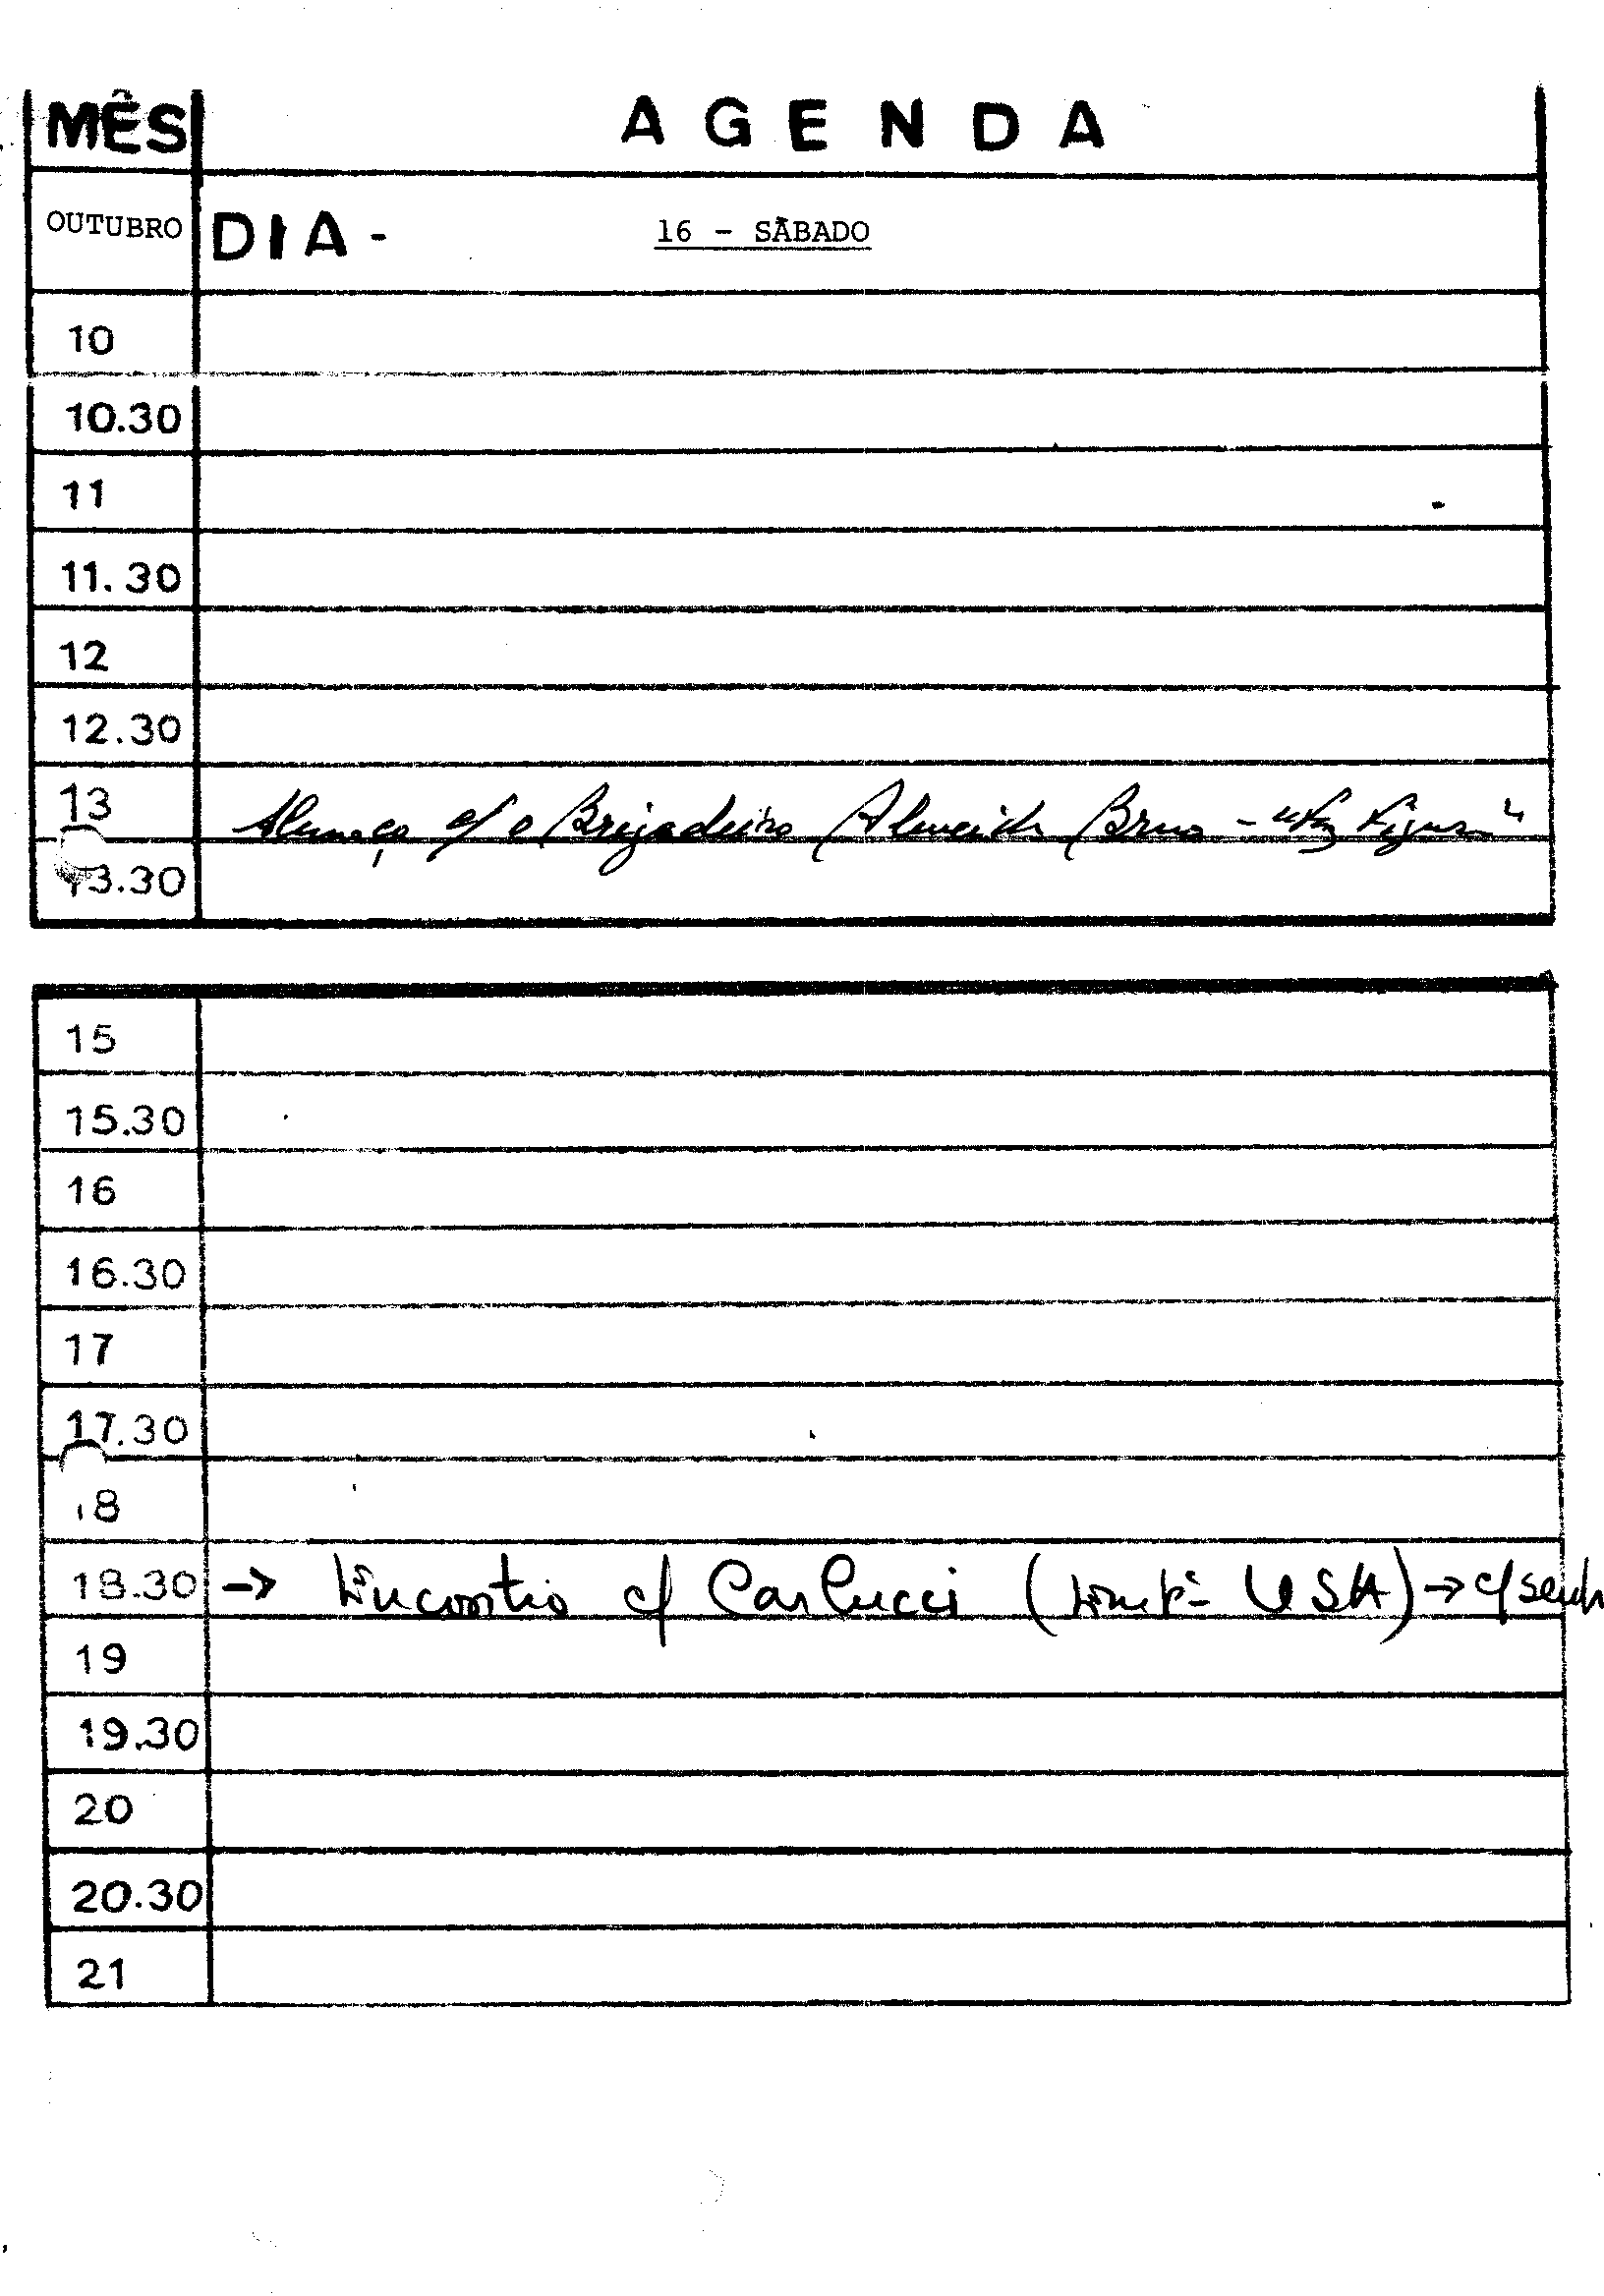 MÊS AGENDA
OUTUBRO DIA - 16 - SÁBADO
10
10.30
11
11.30
12
12.30
13 Almoço c/ o Brigadeiro Almeida Bruno -
13.30
15
15.30
16
16.30
17
17.30
18
18.30 → Encontro c/ Carlucci ( USA) → c/
19
19.30
20
20.30
21